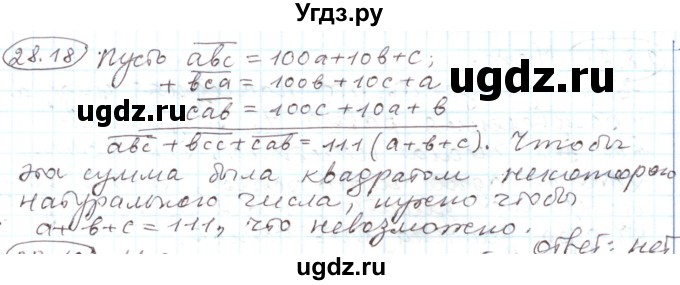 Угдз.ру
28.18 Пусть abc = 100a+10b+c;
+ bca = 100b+10c+a
cab = 100c+10a+b
abc + bcc + cab = 111(a+b+c). Чтобы
эта сумма была квадратом некоторого
натурального числа, нужно чтобы
a+b+c = 111, что невозможно.
ответ: нет
ugdz.ru
ugdz.ru
ugdz.ru
ugdz.ru